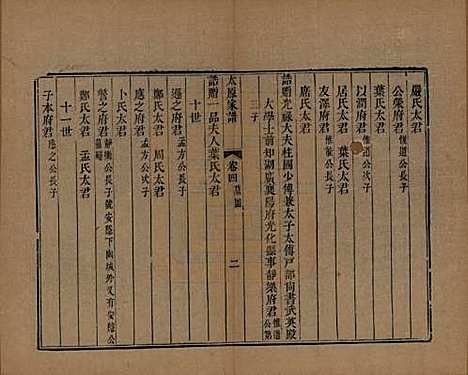 嚴氏太君
公榮府君 惟道公長子
葉氏太君
以潤府君 惟道公次子
居氏太君 葉氏太君
友澤府君 公長子
席氏太君
誥贈光祿大夫柱國少傅兼太子太傅戶部尚書武英殿
大學士前知湖廣襄陽府光化縣事靜樂府君 惟道公第
三子
太原家譜 卷四 墓圖 二
誥贈一品夫人葉氏太君
十世
遜之府君 孟方公長子
鄭氏太君 周氏太君
應之府君 孟方公次子
卜氏太君
之府君 靜樂公長子號安隱下幽城外又有安隱公
鄭氏太君 孟氏太君
十一世
子本府君 應之公長子